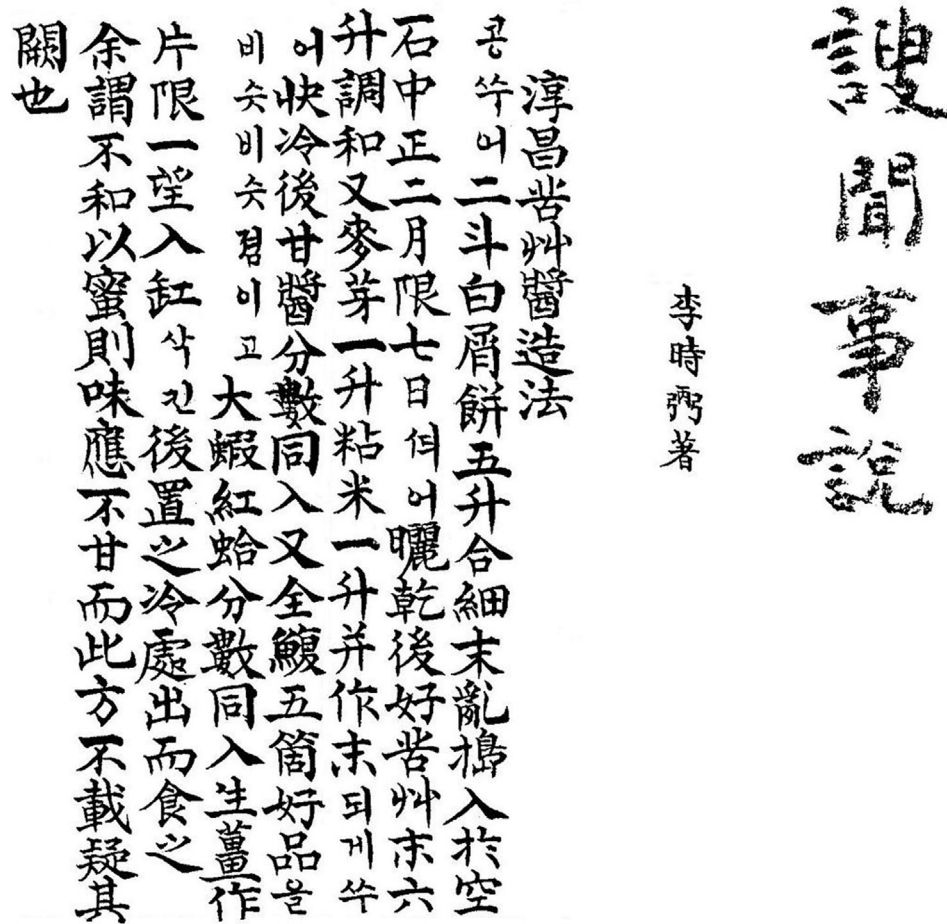 謏聞事說
李時弼著
淳昌苦艸醬造法
콩쑤어二斗白屑餠五升合細末亂搗入於空
石中正二月限七日뎌어曬乾後好苦艸末六
升調和又麥芽一升粘米一升并作末되게쑤
어快冷後甘醬分數同入又全鰒五箇好品을
비슷비슷졈이고大蝦紅蛤分數同入生薑作
片限一望入缸삭진後置之冷處出而食之
余謂不和以蜜則味應不甘而此方不載疑其
闕也